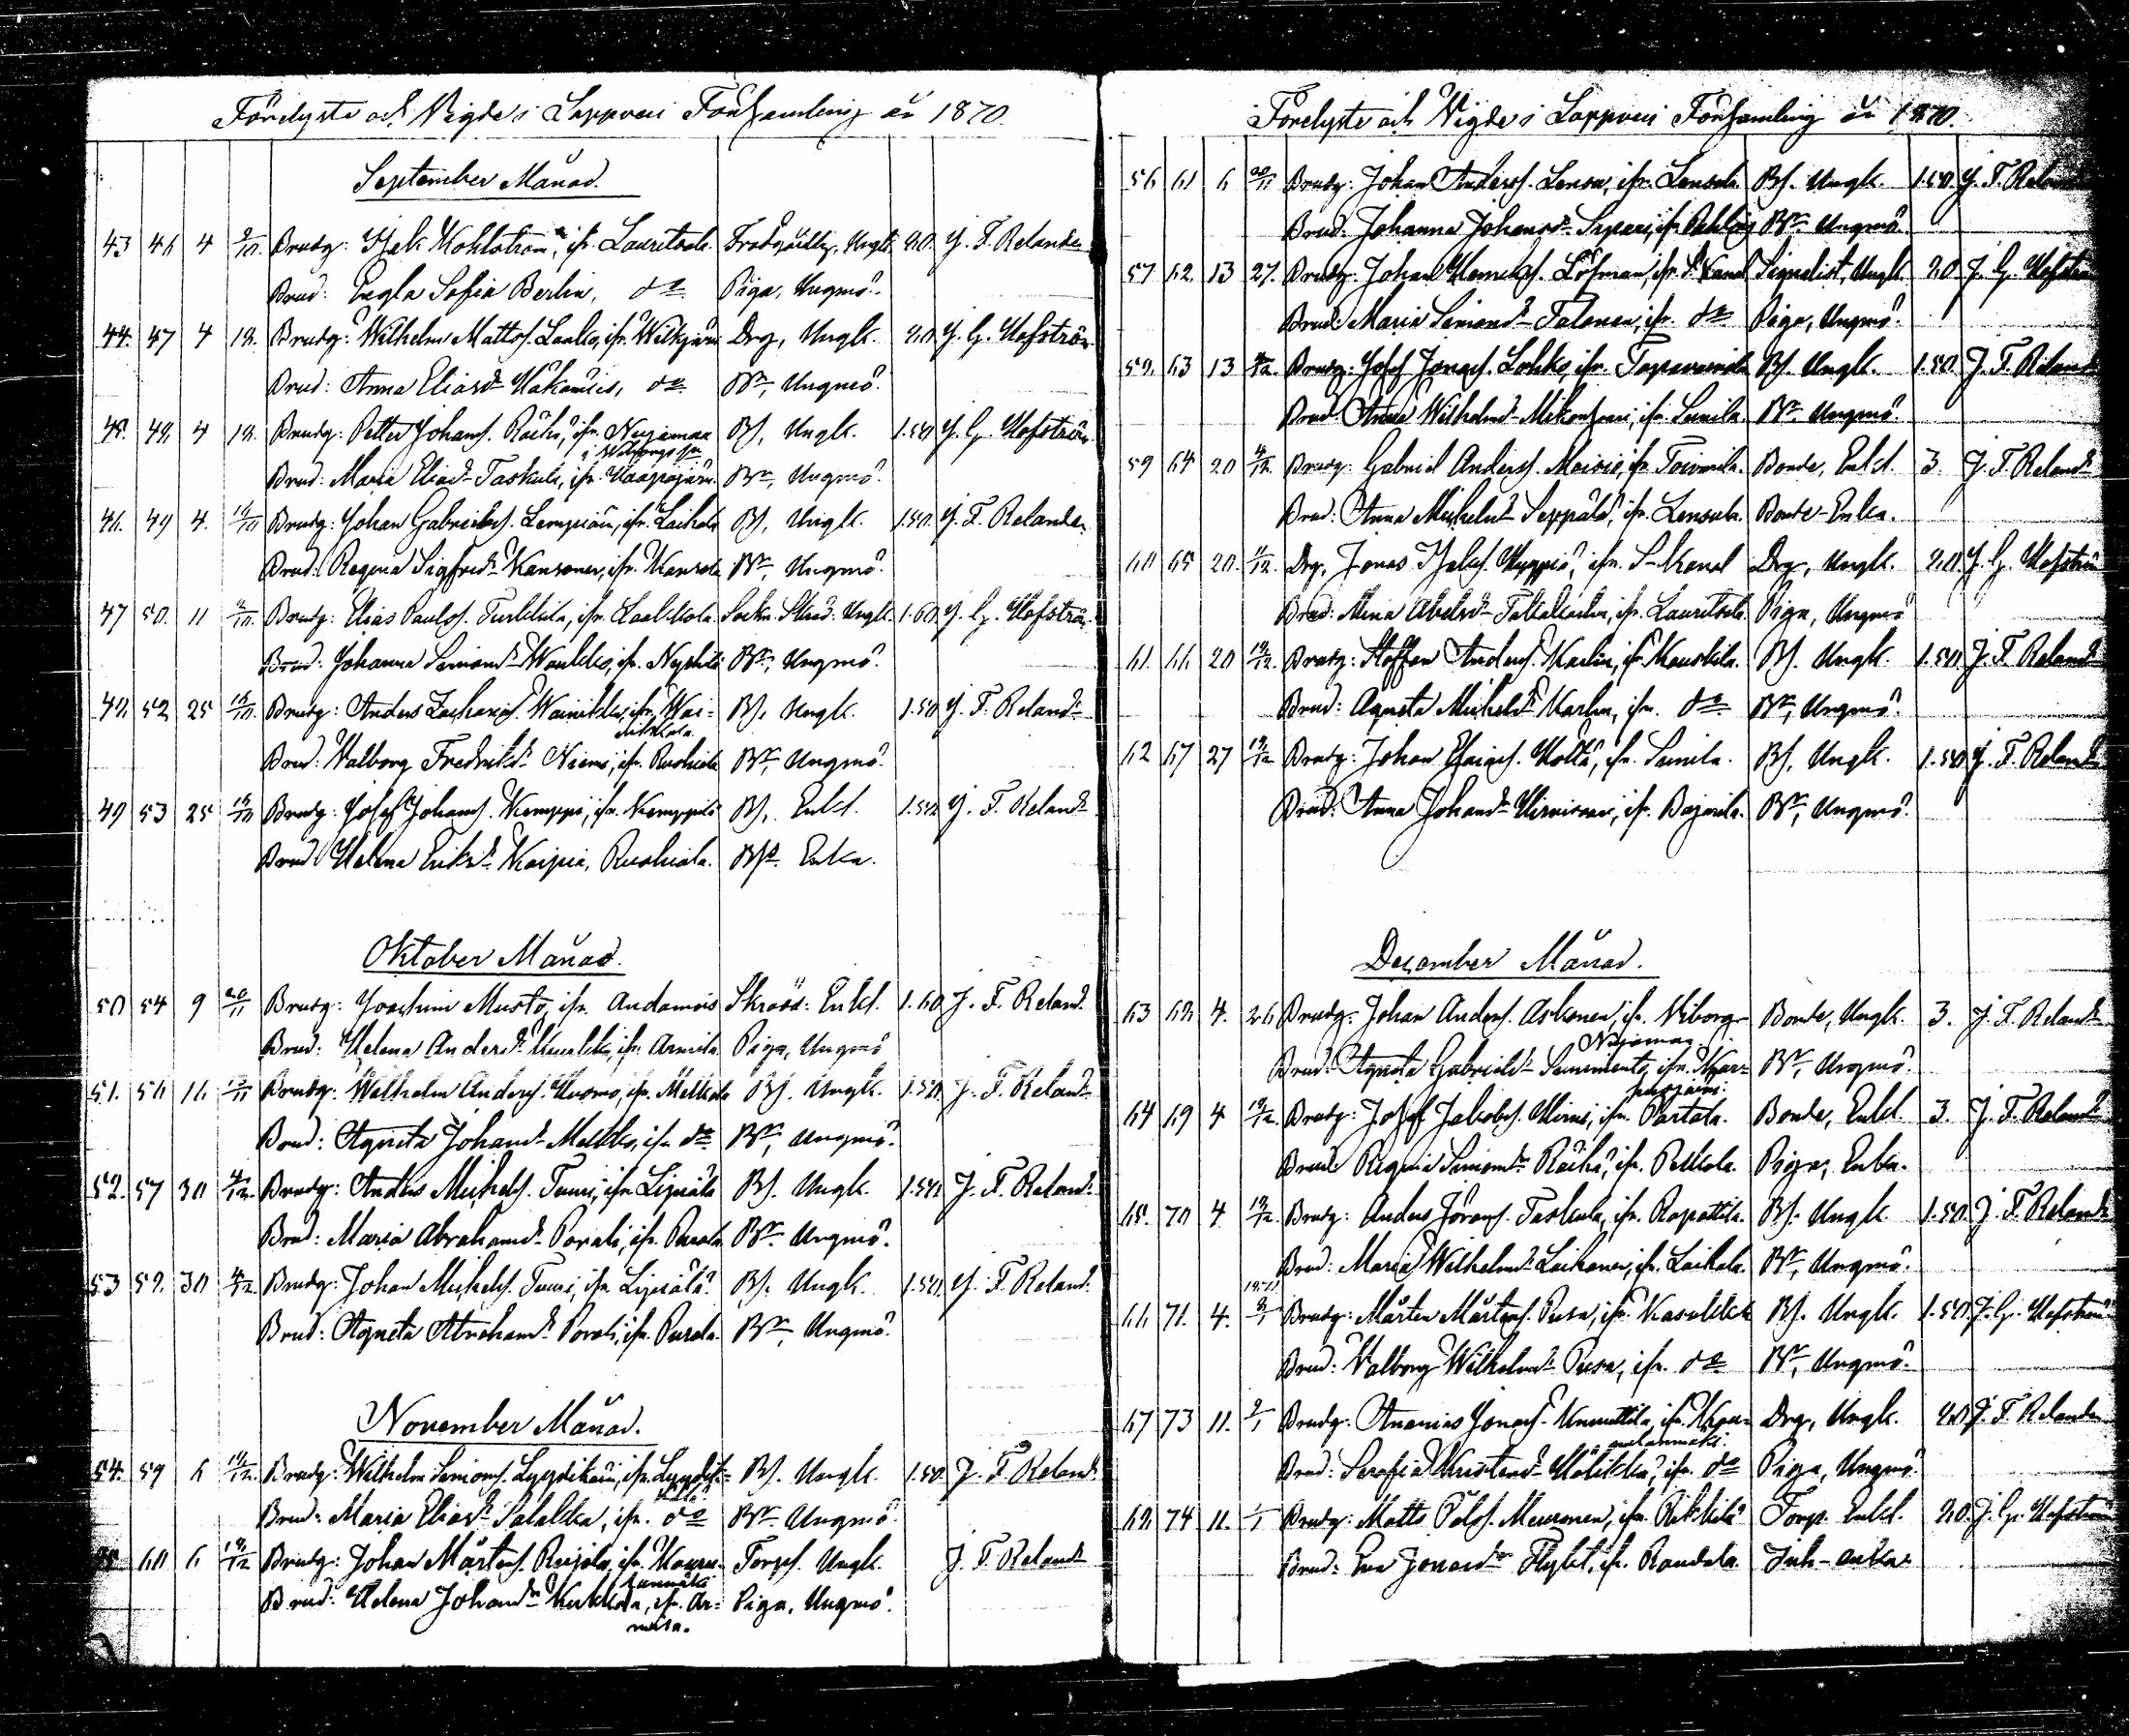 Förelyste och Vigde i Lappvesi Församling år 1870.
September Månad.
43 46 4 2/10. Brudg: Isak Kohlström, ifr. Lauritsala. Ungk. 20. J. F. Relander
Brud: Engla Sofia Berlin, do Piga, Ungmö.
44. 47 4 18. Brudg: Wilhelm Mattss. Laalko, ifr. Wilkjärvi Drg, Ungk. 20. J. G. Hofström
Brud: Anna Eliasdr Häkämies, do Bdr, Ungmö.
45. 48. 4 18. Brudg: Petter Johanss. Räihä, ifr. Nuijamaa Bs, Ungk. 1.50. J. G. Hofström
i Wiborgs sn
Brud: Maria Eliasdr Taskula, ifr. Haapajärvi. Bdr, Ungmö.
46. 49 4. 16/10 Brudg: Johan Gabrielss. Lempiäin, ifr. Laihala Bs, Ungk. 1.50. J. F. Relander
Brud: Regina Sigfredsdr Kansonen, ifr. Kansola Bdr, Ungmö.
47 50. 11 /10. Brudg: Elias Paulss. Turkkila, ifr. Laalkkola. Sockn. Skräd: Ungk. 1.60. J. G. Hofström
Brud: Johanna Simonsdr Waulkko, ifr. Bdr, Ungmö.
48. 52 25 16/10. Brudg: Anders Zachariass. Wainikka, ifr. Wai- Bs. Ungk. 1.50 J. F. Reland
nikkala.
Brud: Walborg Fredriksdr Niemi, ifr. Ruohiala Bdr, Ungmö.
49 53 25 16/10 Brudg: Josef Johanss. Kemppi, ifr. Kemppilä Bs, Enkl. 1.50. J. F. Reland
Brud: Helena Eriksdr Kaipia, Ruohiala. Bs. Enka.
Oktober Månad.
50 54 9 20/11 Brudg: Joachim Musto, ifr. Andamois Skrädd: Enkl. 1.60 J. F. Reland
Brud: Helena Andersdr ifr. Armila Piga, Ungmö
51. 56 16. /11 Brudg: Wilhelm Anderss. Huomo, ifr. Melkkola Bs. Ungk. 1.50. J. F. Reland
Brud: Agneta Johansdr Melkko, ifr. do Bdr, Ungmö.
52. 57 30 4/12. Brudg: Anders Michelss. Tuuri, ifr. Lipiälä Bs. Ungk. 1.50. J. F. Reland
Brud: Maria Abrahamsdr Porali, ifr. Purala Bdr. Ungmö.
53 58. 30 4/12. Brudg: Johan Michelss. Tuuri, ifr. Lipiälä. Bs. Ungk. 1.50. J. F. Reland
Brud: Agneta Abrahamsdr Porali, ifr. Purala. Bdr, Ungmö.
November Månad.
54. 59 6 18/12. Brudg: Wilhelm Simonss. Lyytikäin, ifr. Lyytik- Bs. Ungk. 1.50. J. F. Reland
Brud: Maria Eliasdr Salakka, ifr. do Bdr. Ungmö.
60 6 18/12 Brudg: Johan Mårtenss. Reijola, ifr. Torps. Ungk. J. F. Reland
Brud: Helena Johansdr ifr. Ar- Piga, Ungmö.
mila.
Förelyste och Vigde i Lappvesi Församling år 1870.
56 61 6 20/11 Brudg: Johan Anderss. Lensu, ifr. Lensula Bs. Ungk. 1.50. J. F. Reland
Brud: Johanna Johansdr Bdr Ungmö.
57 62. 13 27. Brudg: Johan Henrikss. Löfman, ifr. S. Kanal Signalist, Ungk. 20 J. G. Hofström
Brud: Maria Simonsdr Talonen, ifr. do Piga, Ungmö.
58. 63 13 4/12. Brudg: Josef Jonass. Lohko, ifr. Tapavainola Bs. Ungk. 1.50. J. F. Reland
Brud: Anna Wilhelmsdr Mikonsaari, ifr. Sunila. Bdr Ungmö.
59 64 20 4/12 Brudg: Gabriel Anderss. ifr. Toivorila. Bonde, Enkl. 3. J. F. Reland
Brud: Anna Michelsdr Seppälä, ifr. Lensula. Bonde-Enka.
60 65 20. 11/12. Drg, Jonas Isakss. Huppio, ifr. S-Kanal Drg, Ungk. 20 J. G. Hofström
Brud: Mina Abelsdr ifr. Lauritsala Piga, Ungmö
61. 66 20 18/12. Brudg: Staffan Anderss. Karhu, ifr. Hanukila. Bs. Ungk. 1.50. J. F. Reland
Brud: Agneta Michelsdr Karhu, ifr. do Bdr, Ungmö.
62 67 27 18/12 Brudg: Johan Esaiass. Holtä, ifr. Sunila. Bs, Ungk. 1.50. J. F. Reland
Brud: Anna Johansdr Hirvisaari, ifr. Bajarila. Bdr, Ungmö.
December Månad.
63 68. 4. 26 Brudg: Johan Anderss. Askonen, ifr. Viborg Bonde, Ungk. 3. J. F. Reland
Nuijamaa.
Brud: Agneta Gabrielsdr ifr. Haa- Bdr, Ungmö.
pajärvi.
64 69 4 18/12 Brudg: Josef Jakobss. Hirvi, ifr. Partala. Bonde, Enkl. 3. J. F. Reland
Brud: Regina Simonsdr Räihä, ifr. Pulkola. Piga, Enka.
65. 70 4 18/12. Brudg: Anders Göranss. Taskula, ifr. Rapattila. Bs. Ungk 1.50. J. F. Reland
Brud: Maria Wilhelmsdr Laihanen, ifr. Laihala. Bdr, Ungmö.
1871
66 71. 4. Brudg: Mårten Mårtenss. Pusa, ifr. Kasukkala Bs. Ungk. 1.50. J. G. Hofström
Brud: Walborg Wilhelmsdr Pusa, ifr. do Bdr, Ungmö.
67 73 11. 2/1 Brudg: Ananias Jonass. ifr. Drg, Ungk. 20 J. F. Relander
Brud: Serafia Kristersdr ifr. do Piga, Ungmö.
68. 74 11. 1/1 Brudg: Matts Pålss. Meuronen, ifr. Rikkilä Torp. Enkl. 20. J. G. Hofström
Brud: Eva Jonasdr Flykt, ifr. Raudala. Inh-enka